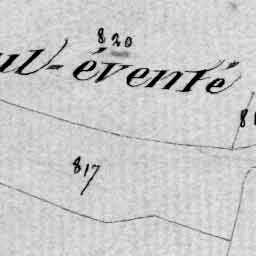 820
ul-éventé
81
817